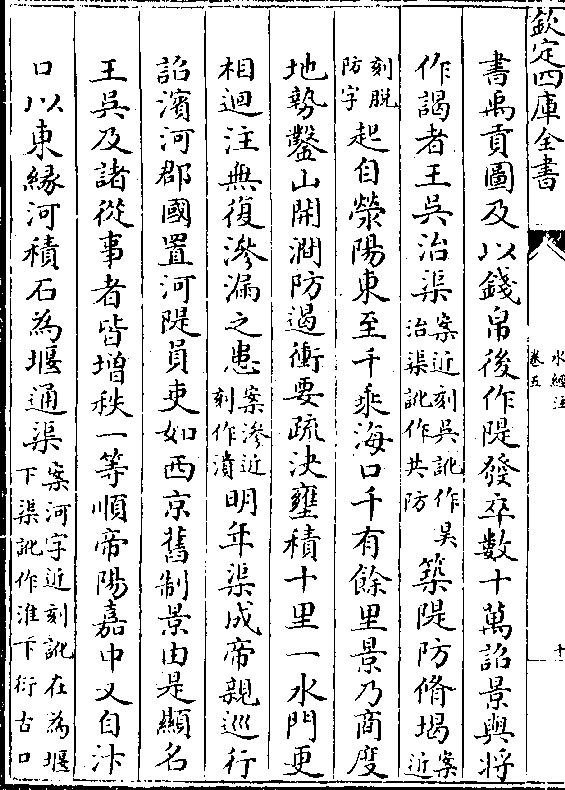 欽定四庫全書
水經注
卷五
十
書禹貢圖及以錢帛後作隄發卒數十萬詔景與將
作謁者王吳治渠案近刻吳訛作吴治渠訛作共防築隄防脩堨案近
刻脱防字起自滎陽東至千乘海口千有餘里景乃商度
地勢鑿山開澗防遏衝要疏決壅積十里一水門更
相迴注無復滲漏之患案滲近刻作潰明年渠成帝親巡行
詔濱河郡國置河隄員吏如西京舊制景由是顯名
王吳及諸從事者皆增秩一等順帝陽嘉中又自汴
口以東緣河積石為堰通渠案河字近刻訛在為堰下渠訛作淮下衍古口